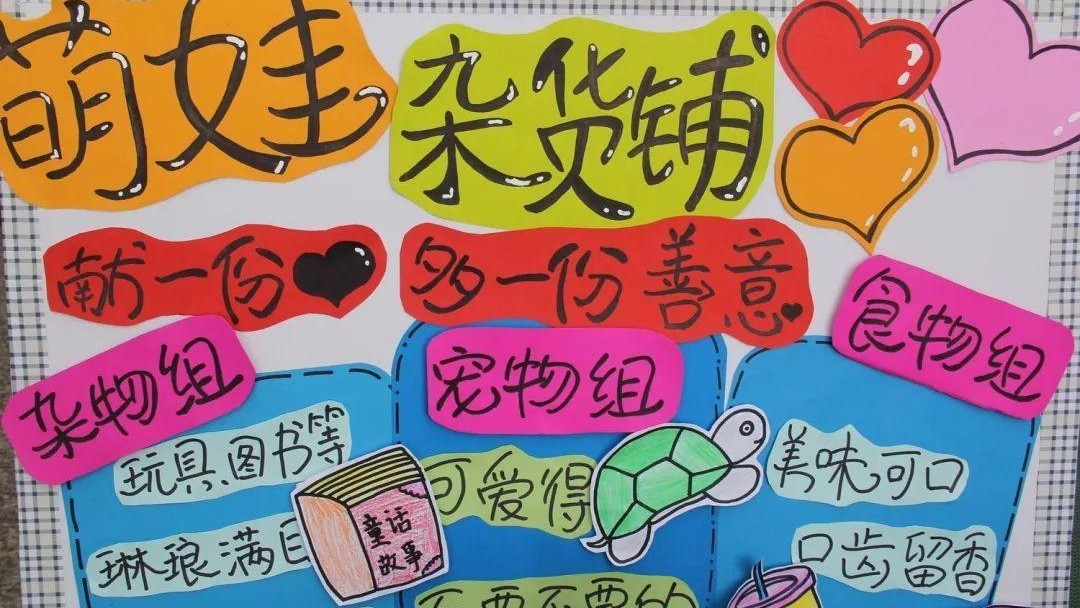 萌娃
杂货铺
献一份
多一份善意
杂物组
宠物组
食物组
玩具、图书等
琳琅满目
童话
故事
可爱得
不要不要的
美味可口
口齿留香